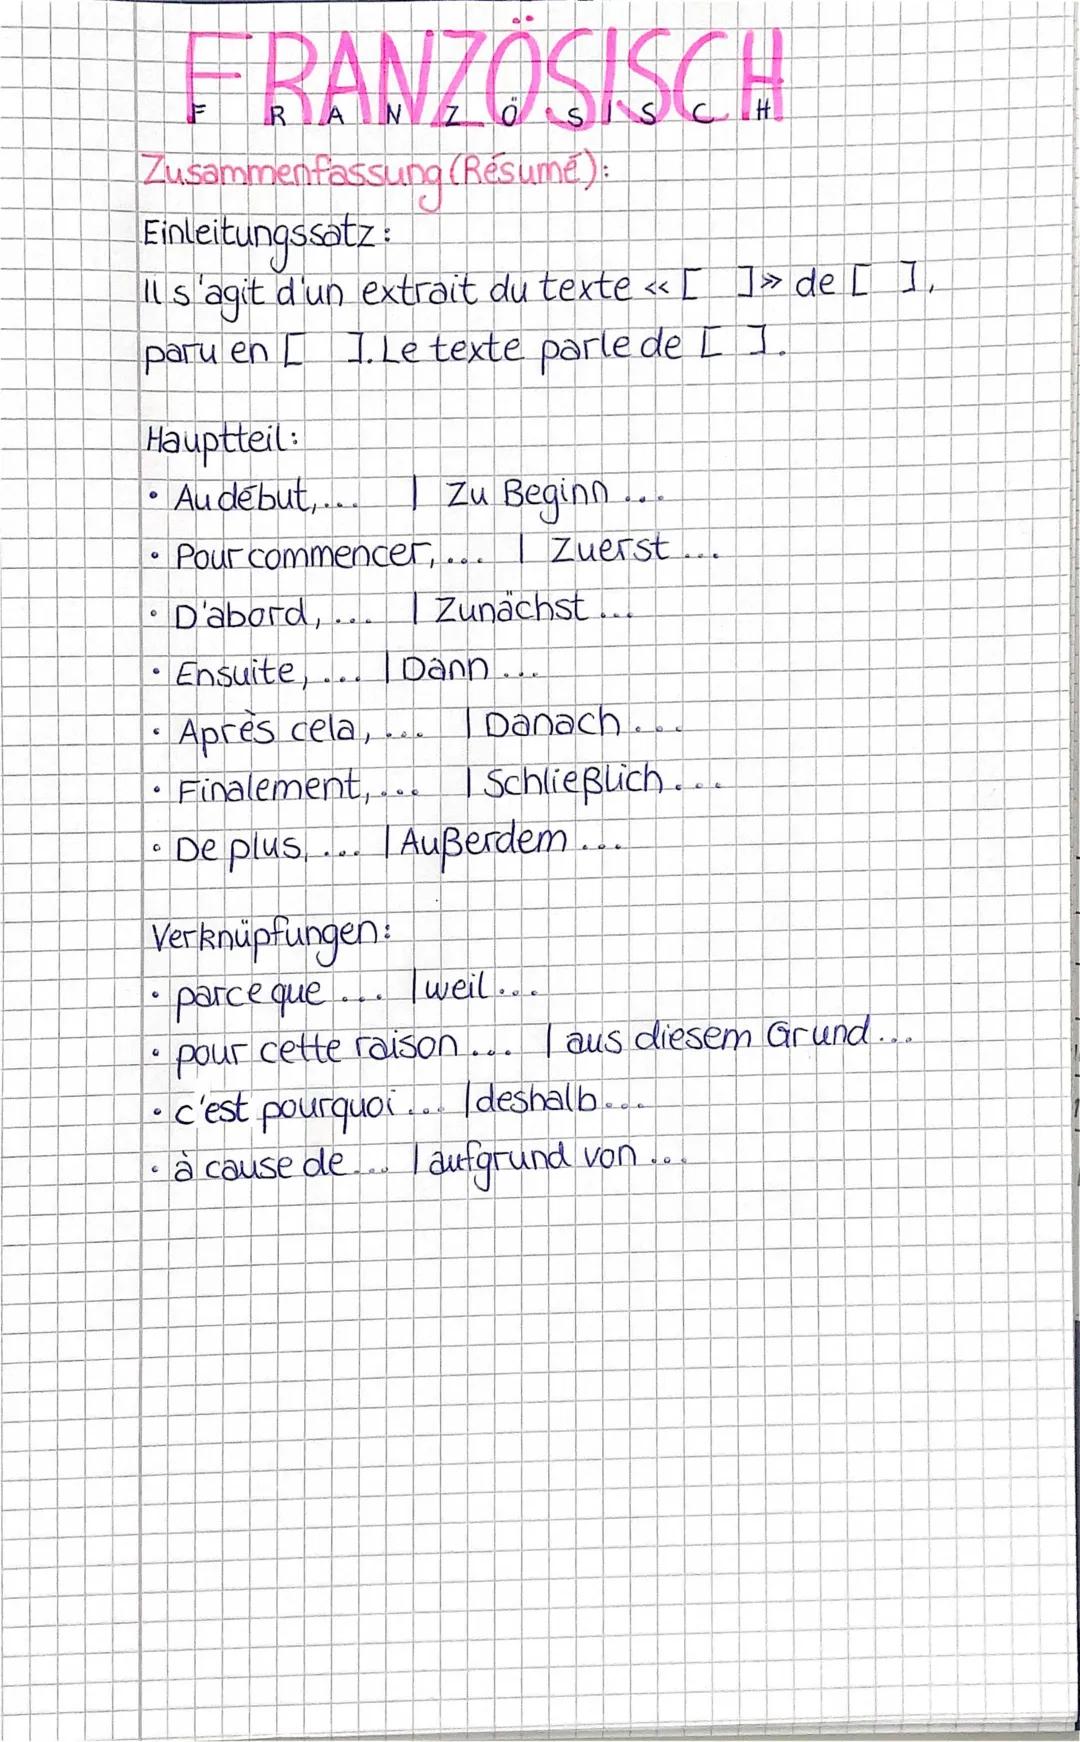 FRANZÖSISCH
F R A N Z Ö S I S C H
Zusammenfassung (Résumé):
Einleitungssatz:
Il s'agit d'un extrait du texte «[ ]» de [ ],
paru en [ ]. Le texte parle de [ ].
Hauptteil:
• Au début,... | Zu Beginn ...
• Pour commencer, ... | Zuerst ...
• D'abord, ... | Zunächst ...
• Ensuite, ... | Dann ...
• Après cela, ... | Danach ...
• Finalement, ... | Schließlich ...
• De plus, ... | Außerdem ...
Verknüpfungen:
• parce que ... | weil ...
• pour cette raison ... | aus diesem Grund ...
• c'est pourquoi ... | deshalb ...
• à cause de ... | aufgrund von ...